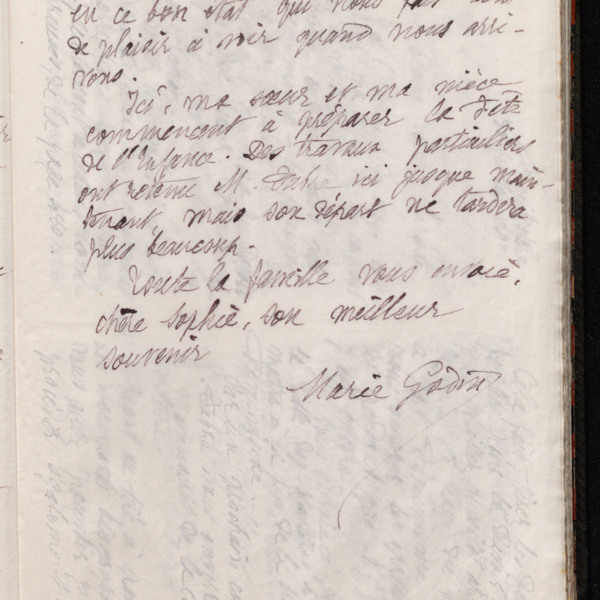 en ce bon état qui nous fait tant
de plaisir à voir quand nous arri-
vons.
Ici, ma sœur et ma nièce
commencent à préparer la Fête
de l'Enfance. Des travaux particuliers
ont retenu M. Dubre ici jusque main-
tenant mais son départ ne tardera
plus beaucoup.
Toute la famille vous envoie,
chère Sophie, son meilleur
souvenir
Marie Godin